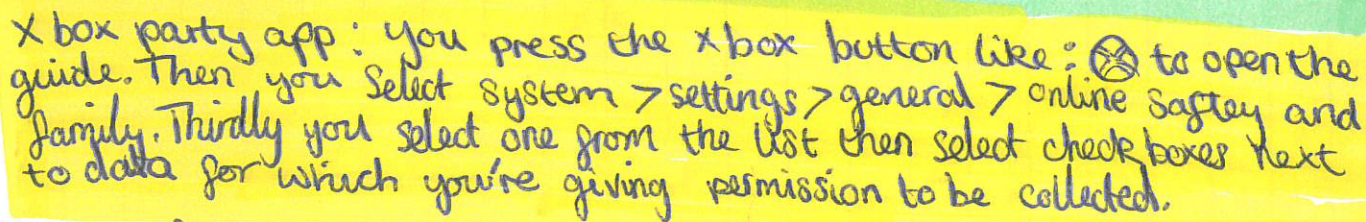 Xbox party app: you press the xbox button like: to open the
guide. Then you select system > settings > general > online saftey and
family. Thirdly you select one from the list then select check boxes next
to data for which you're giving permission to be collected.